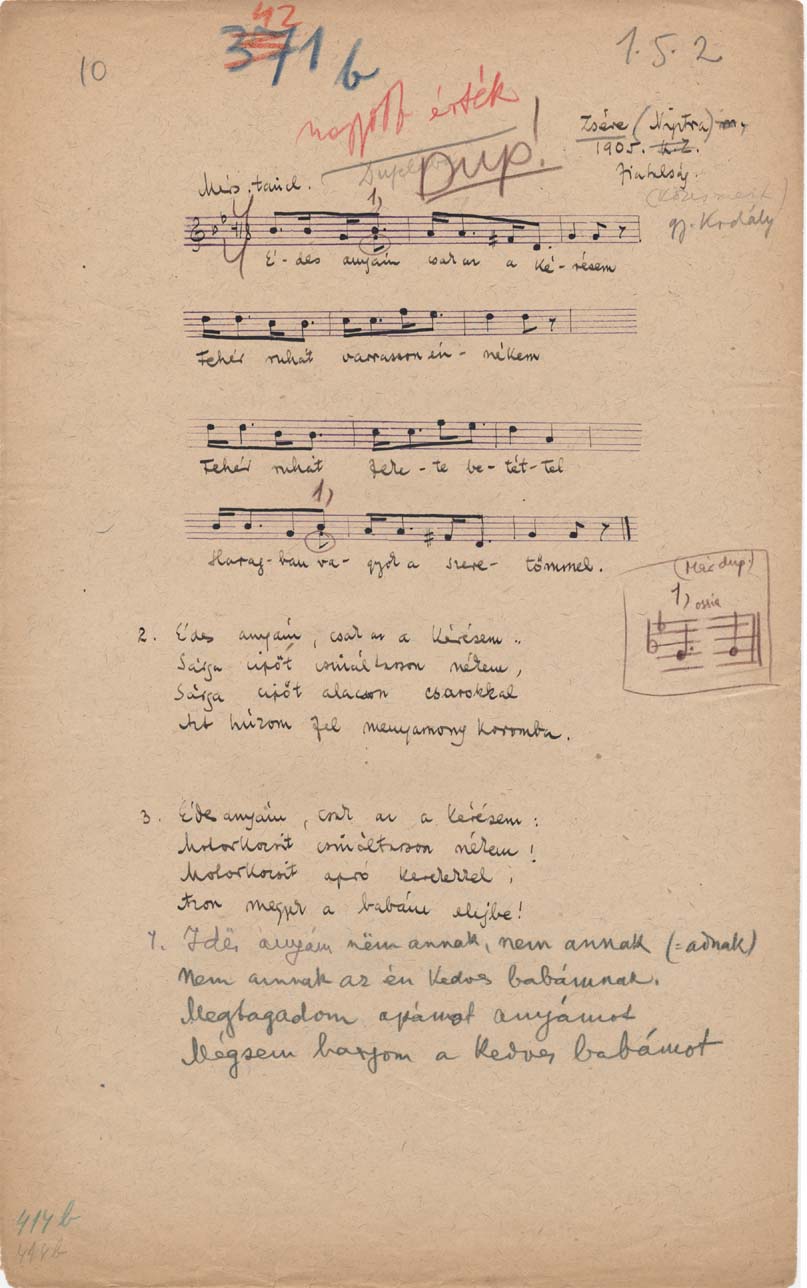 42
371 b
10
1. 5. 2
nagyobb érték
Dup!
Zsére (Nyitra)
1905.
Fiatalság.
gy. Kodály
1,
É-des anyám csak az a ké-résem
Fehér ruhát varrasson én-nékem
Fehér ruhát feke-te be-tét-tel
1,
Harag-ban va-gyok a szere-tőmmel.
(Már dup.)
1, ossia
2. Édes anyám, csak az a kérésem..
Sárga cipőt csináltasson nékem,
Sárga cipőt alacson csarokkal
Azt húzom fel menyasszony koromba.
3. Édes anyám, csak az a kérésem:
Motorkocsit csináltasson nékem!
Motorkocsit apró kerekekkel,
Azon megyek a babám elejbe!
4. Idës anyám nëm annak, nem annak (=adnak)
Nem annak az én kedves babámnak.
Megtagadom apámot anyámot
Mégsem hagyom a kedves babámot
414 b
418 b